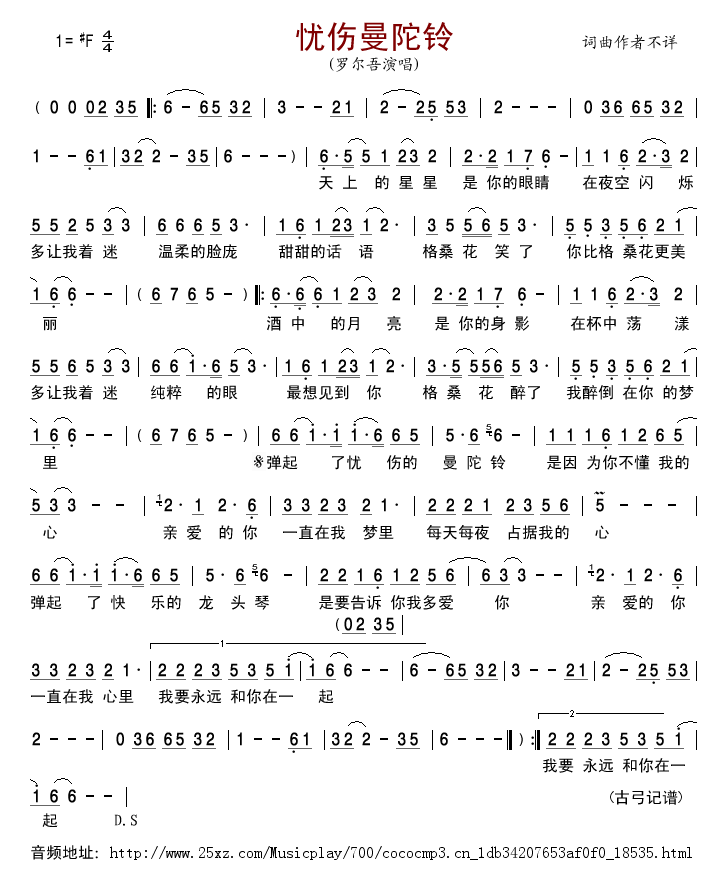 忧伤曼陀铃
1= #F 4/4 词曲作者不详
(罗尔吾演唱)
( 0 0 02 35 |: 6 - 65 32 | 3 - - 21 | 2 - 25 53 | 2 - - - | 0 36 65 32 |
1 - - 61 | 32 2 - 35 | 6 - - - ) | 6·5 5 1 23 2 | 2·2 1 7 6 - | 1 1 6 2·3 2 |
天 上 的 星 星 是 你的眼睛 在夜空 闪 烁
5 5 2 5 3 3 | 6 6 6 5 3· | 1 6 1 23 1 2· | 3 5 56 5 3· | 5 5 3 5 6 2 1 |
多让我着 迷 温柔的脸庞 甜甜的话 语 格桑 花 笑 了 你比格 桑花更美
1 6 6 - - | ( 6 7 6 5 - ) |: 6·6 6 1 2 3 2 | 2·2 1 7 6 - | 1 1 6 2·3 2 |
丽 酒 中 的月 亮 是 你的身 影 在杯中 荡 漾
5 5 6 5 3 3 | 6 6 1·6 5 3· | 1 6 1 23 1 2· | 3·5 556 5 3· | 5 5 3 5 6 2 1 |
多让我着 迷 纯粹 的眼 最想见到 你 格 桑 花 醉了 我醉倒 在你 的梦
1 6 6 - - | ( 6 7 6 5 - ) | 6 6 1·1 1·6 6 5 | 5·6 5 6 - | 1 1 1 6 1 2 6 5 |
里 𝄋弹起 了忧 伤的 曼 陀 铃 是因 为你不懂 我的
5 3 3 - - | 1 2· 1 2· 6 | 3 3 2 3 2 1· | 2 2 2 1 2 3 5 6 | 5 - - |
心 亲 爱 的 你 一直在我 梦里 每天每夜 占据我的 心
6 6 1·1 1·6 6 5 | 5·6 5 6 - | 2 2 1 6 1 2 5 6 | 6 3 3 - - | 1 2· 1 2· 6 |
弹起 了 快 乐的 龙 头 琴 是要告诉 你我多爱 你 亲 爱的 你
(02 35|
1
3 3 2 3 2 1· | 2 2 2 3 5 3 5 1 | 1 6 6 - - | 6 - 65 32 | 3 - - 21 | 2 - 25 53 |
一直在我 心里 我要永远 和你在一 起
2
2 - - - | 0 36 65 32 | 1 - - 61 | 32 2 - 35 | 6 - - - ‖ ) :| 2 2 2 3 5 3 5 1 |
我要 永远 和你在一
1 6 6 - - |
(古弓记谱)
起 D.S
音频地址: http://www.25xz.com/Musicplay/700/cococmp3.cn_1db34207653af0f0_18535.html